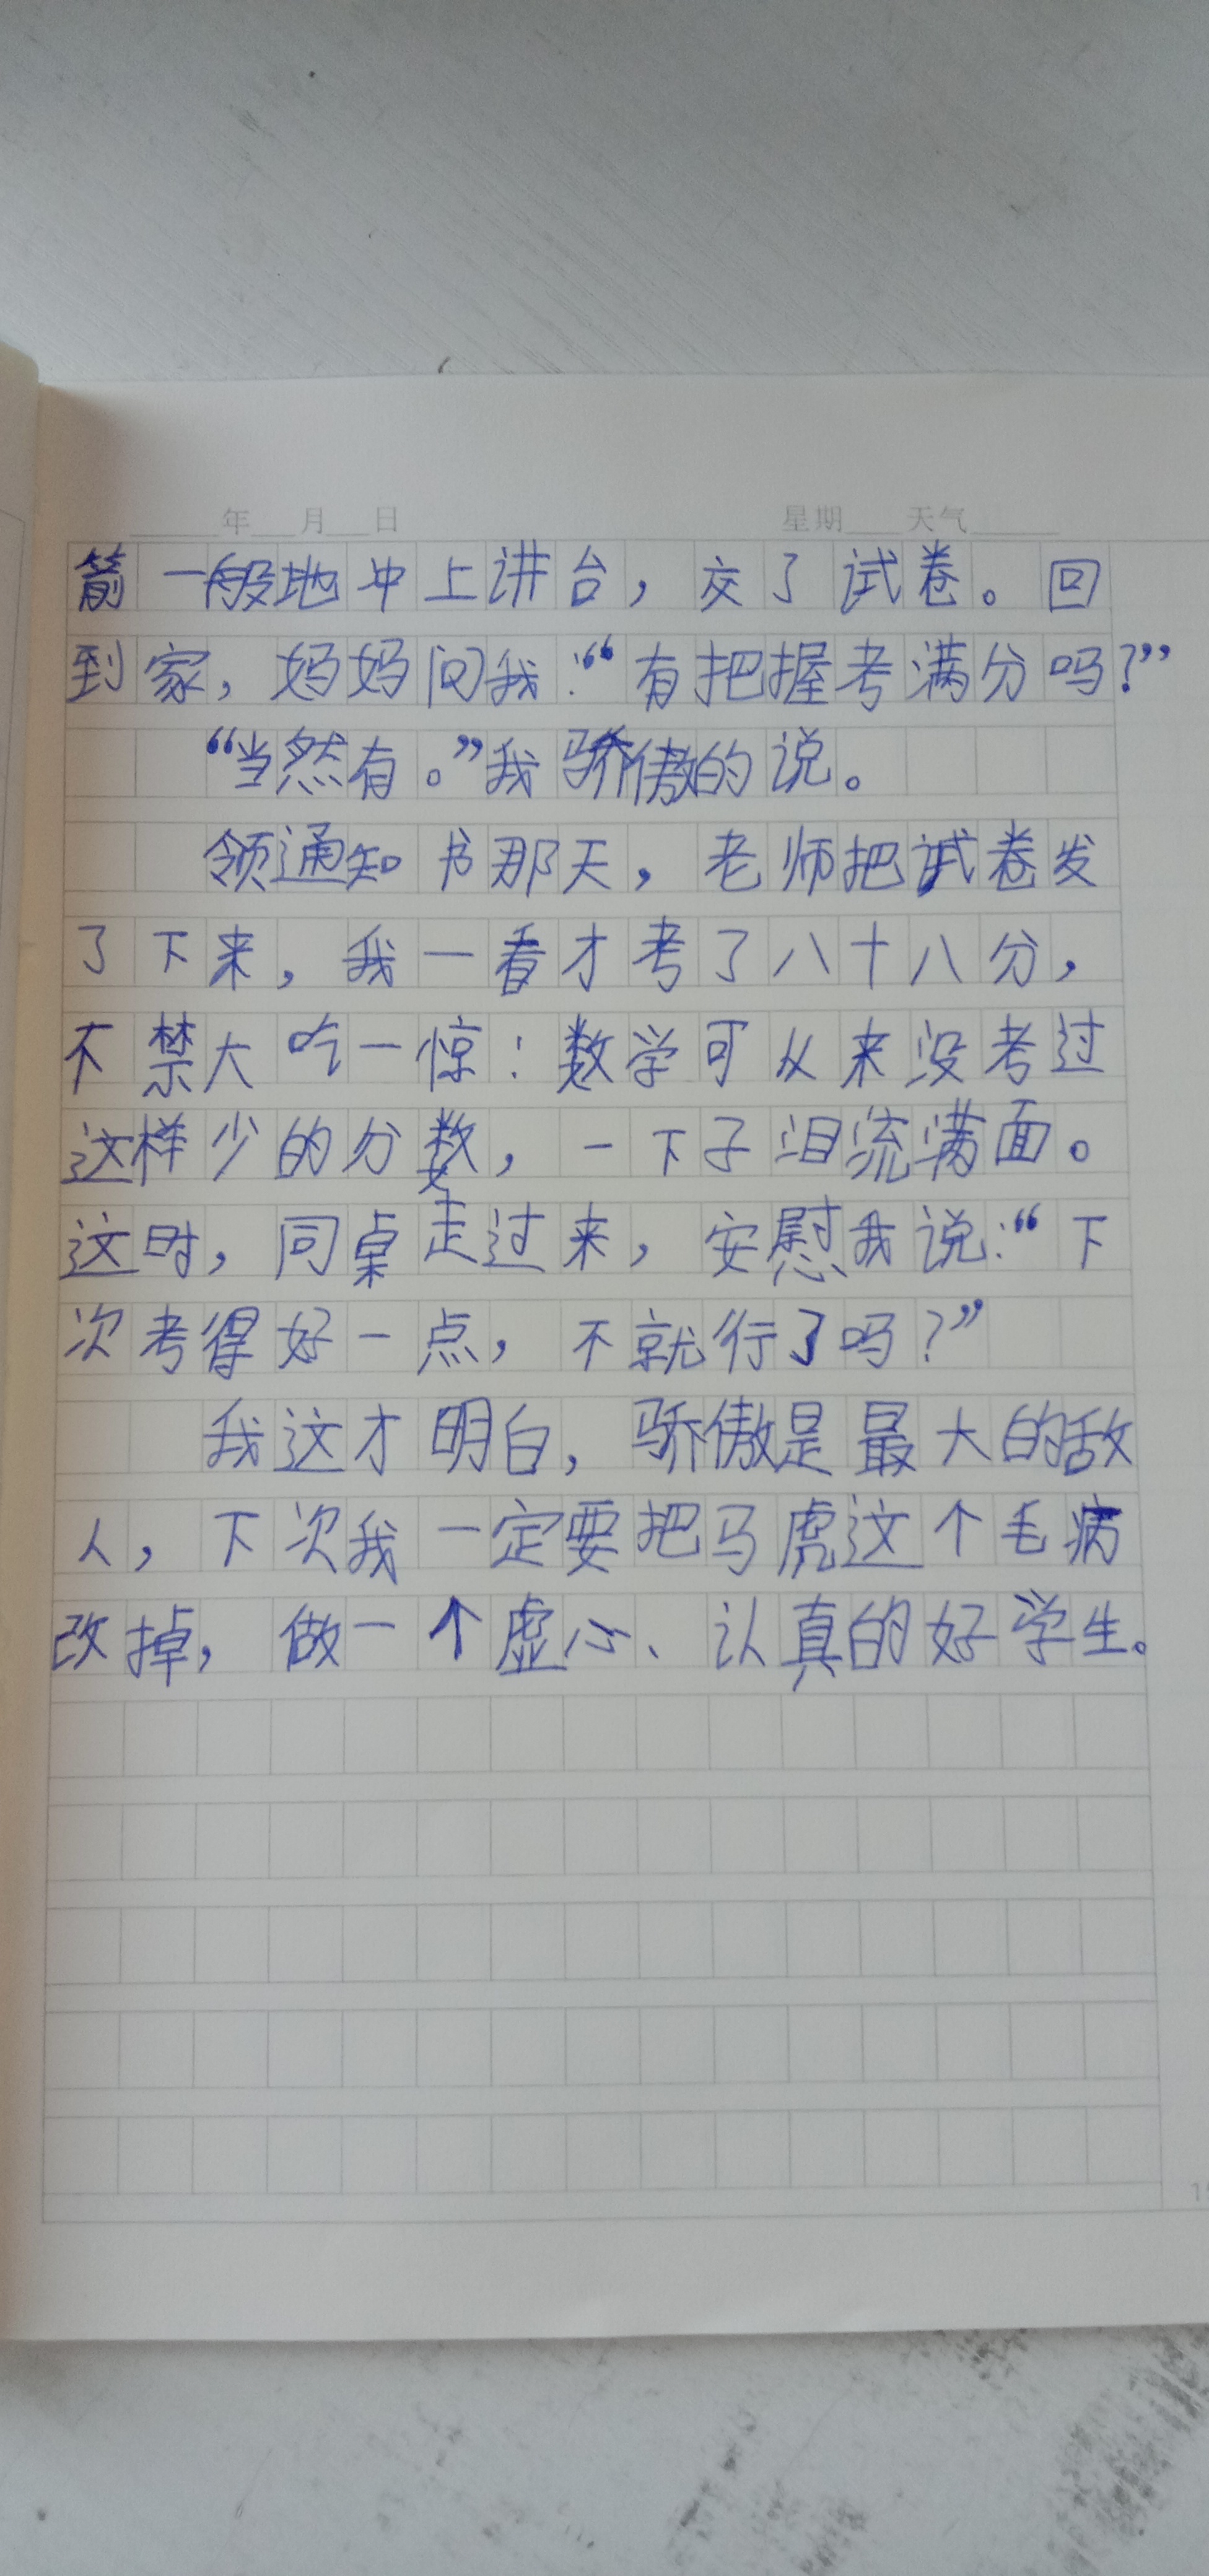 年 月 日 星期 天气
箭一般地冲上讲台，交了试卷。回
到家，妈妈问我：“有把握考满分吗？”
“当然有。”我骄傲的说。
领通知书那天，老师把试卷发
了下来，我一看才考了八十八分，
不禁大吃一惊：数学可从来没考过
这样少的分数，一下子泪流满面。
这时，同桌走过来，安慰我说：“下
次考得好一点，不就行了吗？”
我这才明白，骄傲是最大的敌
人，下次我一定要把马虎这个毛病
改掉，做一个虚心、认真的好学生。